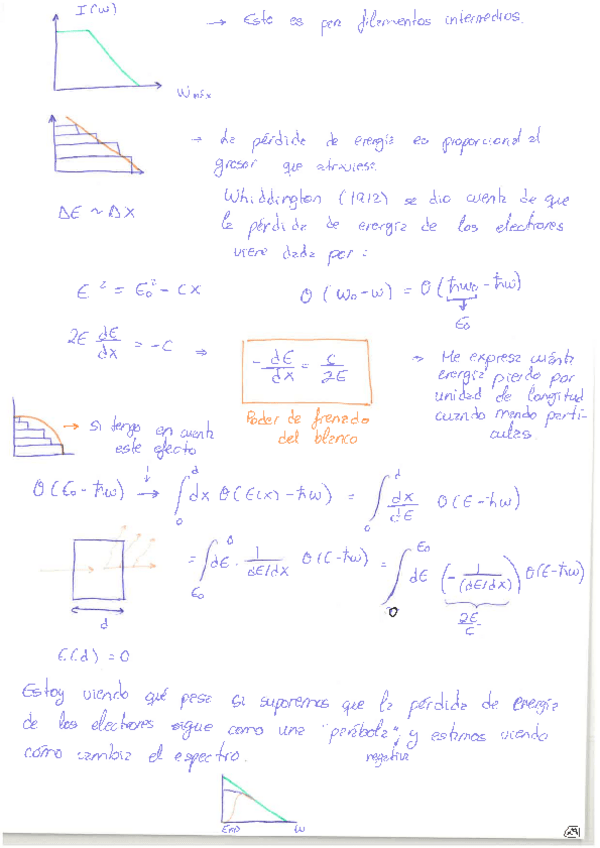 I(w)
→ Este es para filamentos intermedios.
Wmáx
→ La pérdida de energía es proporcional al
grosor que atraviesa.
Whiddington (1912) se dio cuenta de que
ΔE ~ ΔX
la pérdida de energía de los electrones
viene dada por:
E² = E₀² - cx
θ(w₀-w) = θ(ħw₀ - ħw)
E₀
2E dE/dx = -c ⇒
- dE/dx = c/2E
→ Me expresa cuánta
energía pierdo por
unidad de longitud
cuando mando partí-
culas.
Poder de frenado
del blanco
→ Si tengo en cuenta
este efecto
θ(E₀ - ħw) → ∫₀ᵈ dx θ(E(x) - ħw) = ∫₀ᵈ dx/dE θ(E - ħw)
= ∫_E₀^0 dE · 1/(dE/dx) θ(E - ħw) = ∫_0^E₀ dE (- 1/(dE/dx)) θ(E - ħw)
2E/c
d
E(d) = 0
Estoy viendo qué pasa si suponemos que la pérdida de energía
de los electrones sigue como una "parábola", y estamos viendo
negativa
cómo cambia el espectro.
w
29